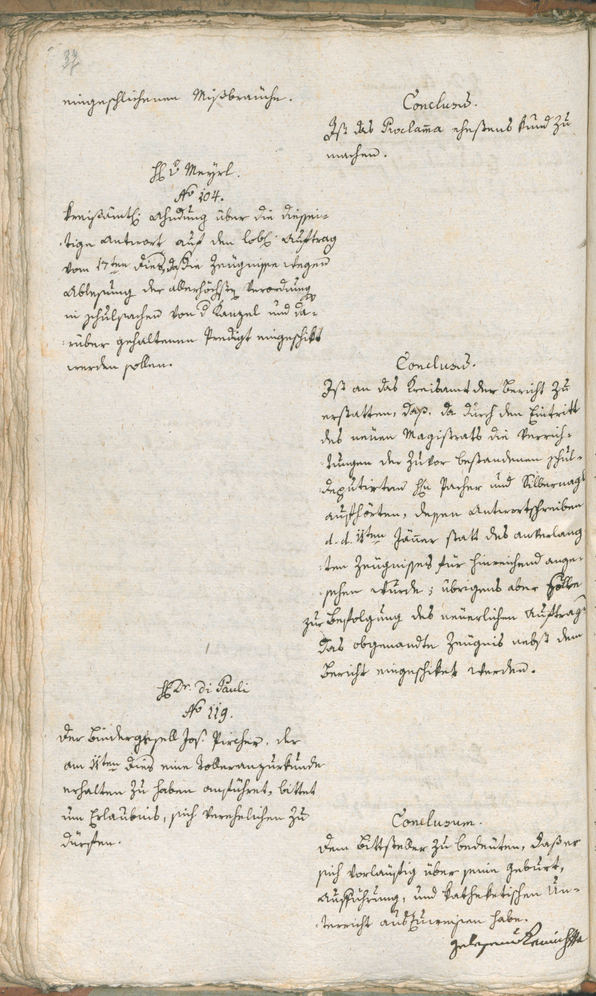 37
eingeschlichenen Mißbräuche.
Conclusum.
Ist das Proclama ehestens kund zu
machen.
H. v. Meyrl.
No 104.
Kreißämtl. Ahndung über die diessei-
tige Antwort auf den löbl. Auftrag
vom 17ten dies, daß die Zeugnisse wegen
Ablesung der allerhöchsten Verordnung
in Schulsachen von d. Kanzel und da-
rüber gehaltenen Predigt eingeschikt
werden sollen.
Conclusum.
Ist an das Kreisamt der Bericht zu
erstatten, daß, da durch den Eintritt
des neuen Magistrats die Verrich-
tungen der zuvor bestandenen Schul-
deputirten Hn. Pacher und Silbernagl
aufhörten, dessen Antwortschreiben
d. d. ten Jäner statt des anverlang-
ten Zeugnisses für hinreichend ange-
sehen wurde; übrigens aber
zur Befolgung des neuerlichen Auftrags
das obgenandte Zeugnis nebst dem
Bericht eingeschiket werden.
H. Dr. di Pauli
No 119.
Der Bindergesell Jos. Pircher, der
am ten dies eine Toleranzurkunde
erhalten zu haben anführet, bittet
um Erlaubnis, sich verehelichen zu
dürfen.
Conclusum.
Dem Bittsteller zu bedeuten, daß er
sich vorläufig über seine Geburt,
Aufführung, und kathektischen Un-
terricht auszuweisen habe.